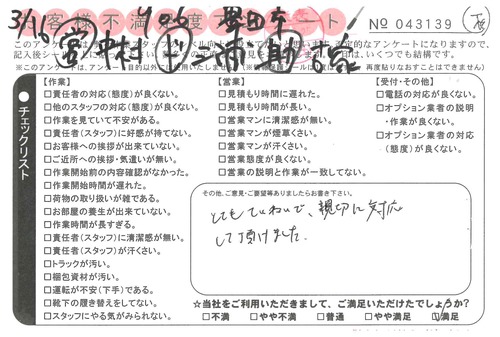 お客様不満度アンケート
No 043139
3/18
このアンケートは
記入後シール
いつでも結構です。
※このアンケートは、アンケート目的以外に使用いたしません
再度貼りなおすことはできません)
チェックリスト
【作業】
□責任者の対応(態度)が良くない。
□他のスタッフの対応(態度)が良くない。
□作業を見ていて不安がある。
□責任者(スタッフ)に好感が持てない。
□お客様への挨拶が出来ていない。
□ご近所への挨拶・気遣いが無い。
□作業開始前の内容確認がなかった。
□作業開始時間が遅れた。
□荷物の取り扱いが雑である。
□お部屋の養生が出来ていない。
□作業時間が長すぎる。
□責任者(スタッフ)に清潔感が無い。
□責任者(スタッフ)が汗くさい。
□トラックが汚い。
□梱包資材が汚い。
□運転が不安(下手)である。
□靴下の履き替えをしてない。
□スタッフにやる気がみられない。
【営業】
□見積もり時間に遅れた。
□見積もり時間が長い。
□営業マンに清潔感が無い。
□営業マンが煙草くさい。
□営業マンが汗くさい。
□営業態度が良くない。
□営業の説明と作業が一致してない。
【受付・その他】
□電話の対応が良くない。
□オプション業者の説明
・作業が良くない。
□オプション業者の対応
(態度)が良くない。
その他、ご意見・ご要望等ありましたらお書き下さい。
とてもていねいで、親切に対応
して頂けました。
☆当社をご利用いただきまして、ご満足いただけたでしょうか?
□不満 □やや不満 □普通 □やや満足 □満足